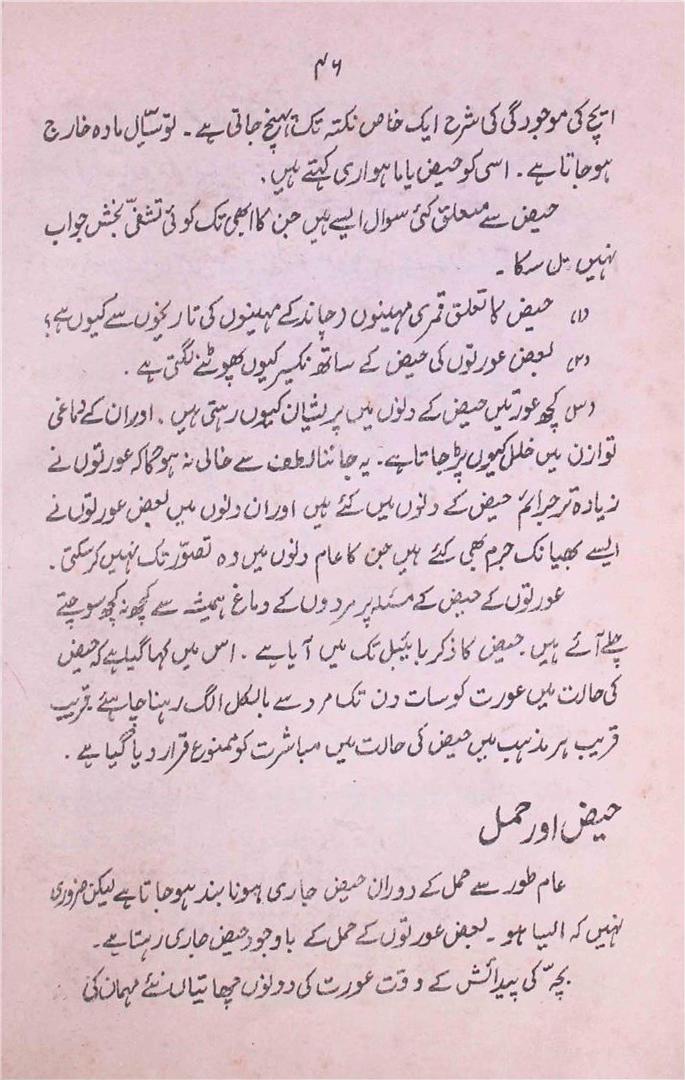 ۴۶
ایچ کی موجودگی کی شرح ایک خاص نکتہ تک پہنچ جاتی ہے ۔ تو سیّال مادہ خارج
ہو جاتا ہے ۔ اسی کو حیض یا ماہواری کہتے ہیں ۔
حیض سے متعلق کئی سوال ایسے ہیں جن کا ابھی تک کوئی تشفّی بخش جواب
نہیں مل سکا ۔
(۱) حیض کا تعلق قمری مہینوں (چاند کے مہینوں کی تاریخوں سے کیوں ہے؟
(۲) بعض عورتوں کی حیض کے ساتھ نکسیر کیوں پھوٹنے لگتی ہے ۔
(۳) کچھ عورتیں حیض کے دنوں میں پریشان کیوں رہتی ہیں ۔ اور ان کے دماغی
توازن میں خلل کیوں پڑ جاتا ہے ۔ یہ جاننا لطف سے خالی نہ ہو گا کہ عورتوں نے
زیادہ تر جرائم حیض کے دنوں میں کئے ہیں اور ان دنوں میں بعض عورتوں نے
ایسے بھیانک جرم بھی کئے ہیں جن کا عام دنوں میں وہ تصوّر تک نہیں کر سکتی ۔
عورتوں کے حیض کے مسئلہ پر مردوں کے دماغ ہمیشہ سے کچھ نہ کچھ سوچتے
چلے آئے ہیں ۔ حیض کا ذکر بائیبل تک میں آیا ہے ۔ اس میں کہا گیا ہے کہ حیض
کی حالت میں عورت کو سات دن تک مرد سے بالکل الگ رہنا چاہئے ۔ قریب
قریب ہر مذہب میں حیض کی حالت میں مباشرت کو ممنوع قرار دیا گیا ہے ۔
حیض اور حمل
عام طور سے حمل کے دوران حیض جاری ہونا بند ہو جاتا ہے لیکن ضروری
نہیں کہ ایسا ہو ۔ بعض عورتوں کے حمل کے باوجود حیض جاری رہتا ہے ۔
بچّہ کی پیدائش کے وقت عورت کی دونوں چھاتیاں نئے مہمان کی